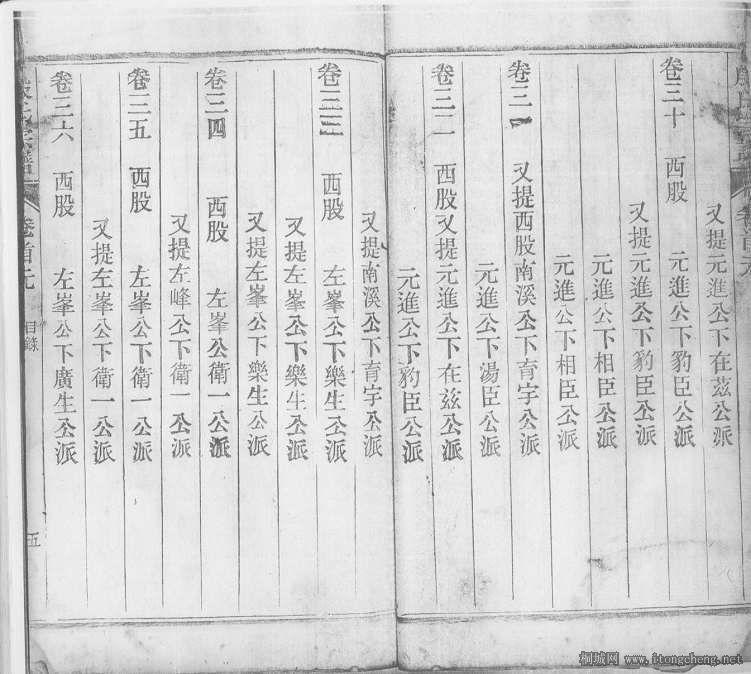 又提元進公下在茲公派
卷三十 西股 元進公下豹臣公派
又提元進公下豹臣公派
元進公下相臣公派
元進公下相臣公派
卷三一 又提西股南溪公下育字公派
元進公下湯臣公派
卷三二 西股又提元進公下在茲公派
元進公下豹臣公派
又提南溪公下育字公派
卷三三 西股 左峯公下樂生公派
又提左峯公下樂生公派
又提左峯公下樂生公派
卷三四 西股 左峯公衛一公派
又提左峰公下衛一公派
卷三五 西股 左峯公下衛一公派
又提左峯公下衛一公派
卷三六 西股 左峯公下廣生公派
卷首元 目錄 五
桐城网 www.itongcheng.net